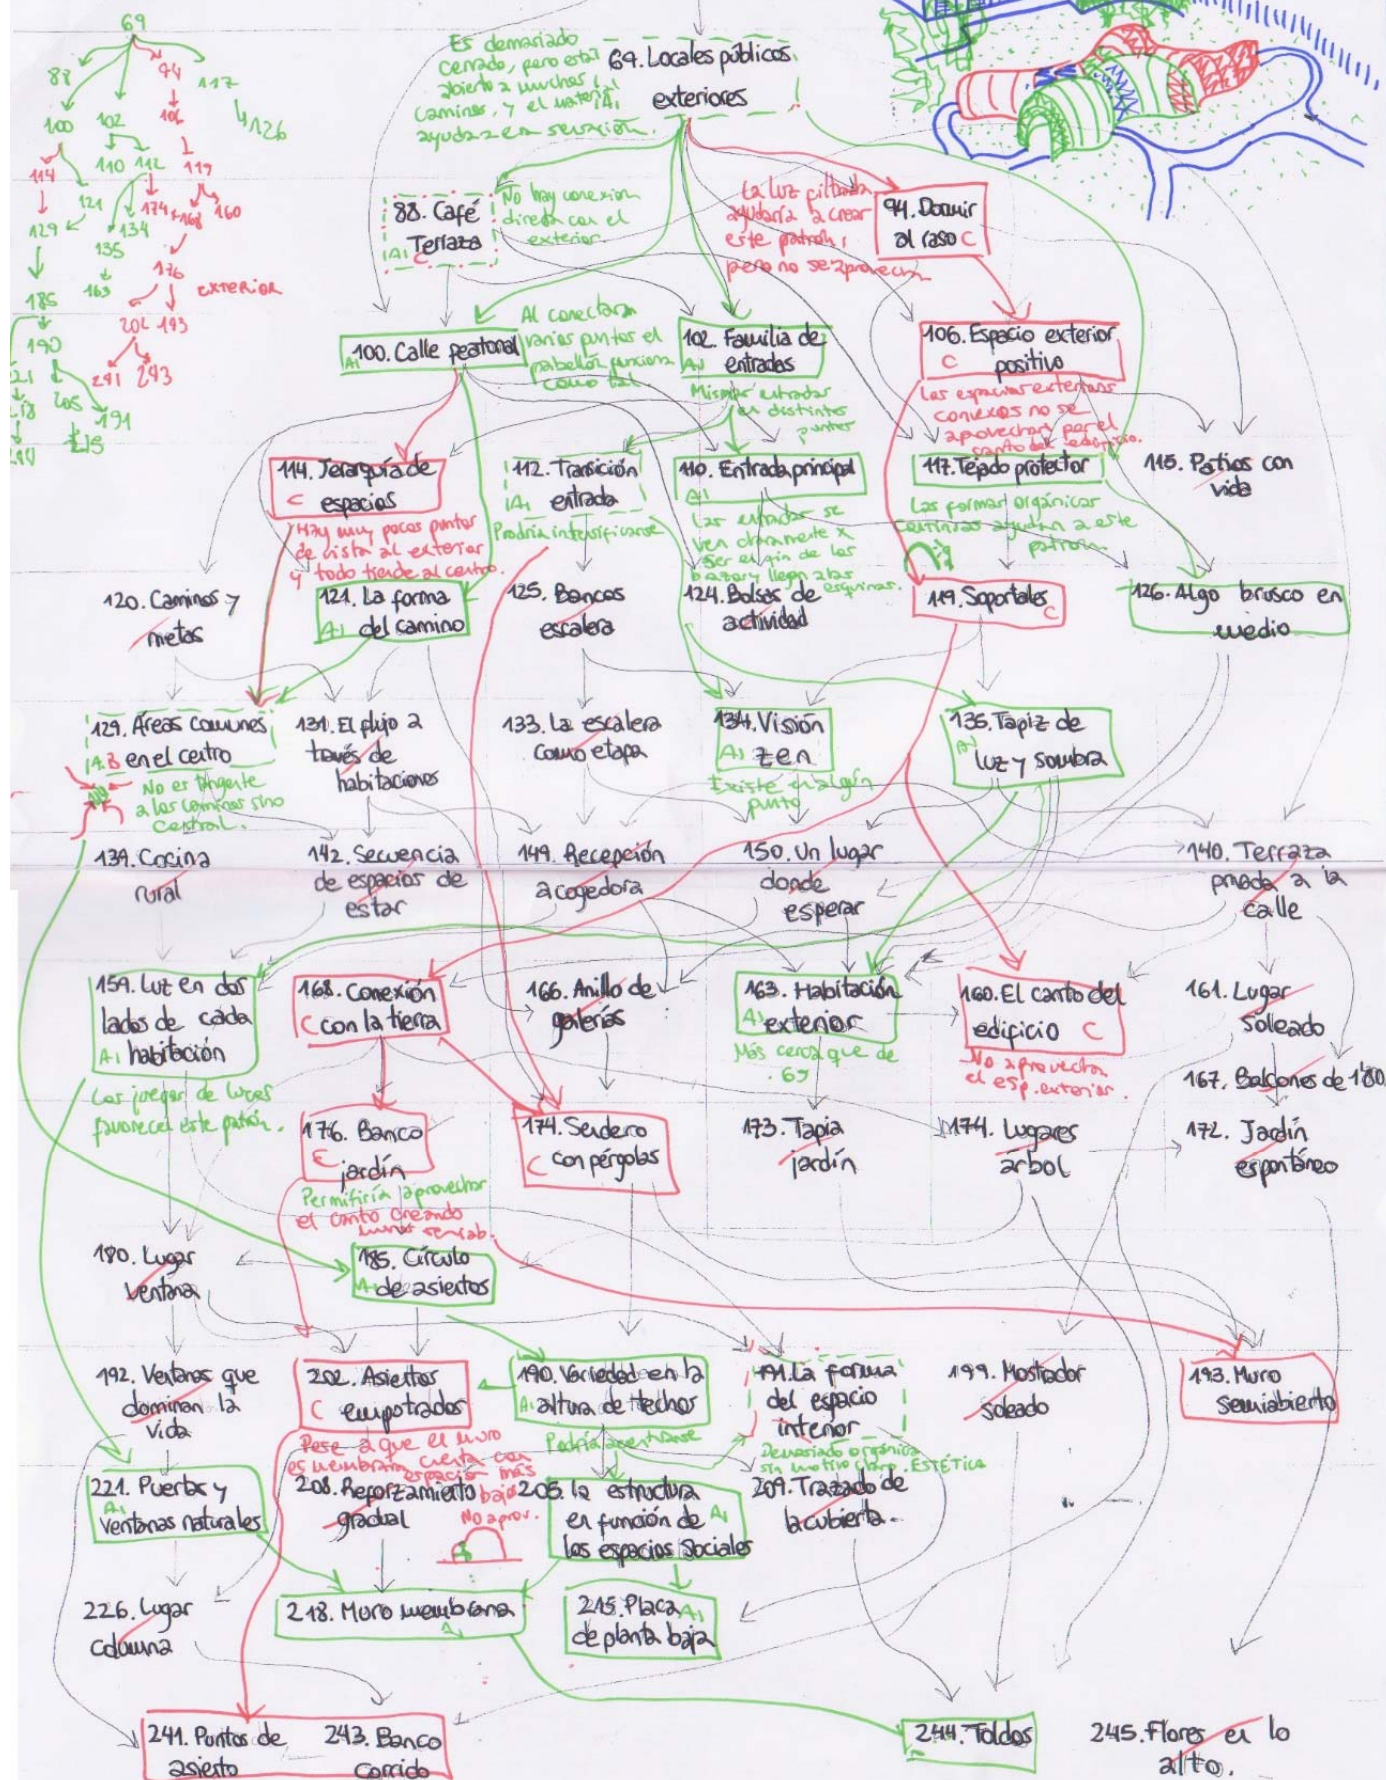 69
88
94
117
100
102
106
126
114
110
112
119
121
174
168
160
129
134
135
163
176
EXTERIOR
185
202
193
190
241
243
205
191
218
215
Es demasiado
cerrado, pero está
abierto a muchos
caminos, y el material
ayuda a esa sensación.
69. Locales públicos
exteriores
A1
88. Café
Terraza
A1
C
No hay conexion
directa con el
exterior.
La luz filtrada
ayudaría a crear
este patrón,
pero no se aprovecha
94. Dormir
al raso C
100. Calle peatonal
A1
Al conectar
varios puntos el
pabellón funciona
como tal
102. Familia de
A1 entradas
Mismas entradas
en distintos
puntos
106. Espacio exterior
C positivo
Los espacios exteriores
conexos no se
aprovechan por el
canto del edificio.
114. Jerarquía de
C espacios
Hay muy pocos puntos
de vista al exterior
y todo tiende al centro.
112. Transición
A1 entrada
Podría intensificarse
110. Entrada principal
A1
Las entradas se
ven claramente x
ser el fin de los
brazos y llegan a las
esquinas.
117. Tejado protector
Las formas orgánicas
continuas ayudan a este
patrón.
115. Patios con
vida
120. Caminos y
metas
121. La forma
A1 del camino
125. Bancos
escalera
124. Bolsas de
actividad
119. Soportales
C
126. Algo brusco en
medio
129. Áreas comunes
A.B en el centro
No es tangente
a los caminos sino
central.
131. El flujo a
través de
habitaciones
133. La escalera
como etapa
134. Visión
A1 zen
Existe en algún
punto
135. Tapiz de
A1 luz y sombra
139. Cocina
rural
142. Secuencia
de espacios de
estar
149. Recepción
acogedora
150. Un lugar
donde
esperar
140. Terraza
privada a la
calle
159. Luz en dos
lados de cada
A1 habitación
Los juegos de luces
favorecen este patrón.
168. Conexión
C con la tierra
166. Anillo de
galerías
163. Habitación
A1 exterior
Más cerca que de
69
160. El canto del
edificio C
No aprovecha
el esp. exterior.
161. Lugar
Soleado
167. Balcones de 1'80
176. Banco
C jardín
Permitiría aprovechar
el canto creando
muros semiab.
174. Sendero
C con pérgolas
173. Tapia
jardín
174. Lugares
árbol
172. Jardín
espontáneo
180. Lugar
Ventana
185. Círculo
A1 de asientos
192. Ventanas que
dominan la
vida
202. Asientos
C empotrados
Pese a que el muro
es membrana cuenta con
espacios más
bajos
No aprov.
190. Variedad en la
A1 altura de techos
Podría acentuarse
191. La forma
del espacio
interior
Demasiado orgánica
sin motivo claro. ESTÉTICA
199. Mostrador
soleado
193. Muro
semiabierto
221. Puertas y
A1
ventanas naturales
208. Reforzamiento
gradual
205. La estructura
en función de A1
los espacios sociales
209. Trazado de
la cubierta.
226. Lugar
columna
218. Muro membrana
A1
215. Placa A1
de planta baja
241. Puntos de
asiento
243. Banco
corrido
244. Toldos
245. Flores en lo
alto.